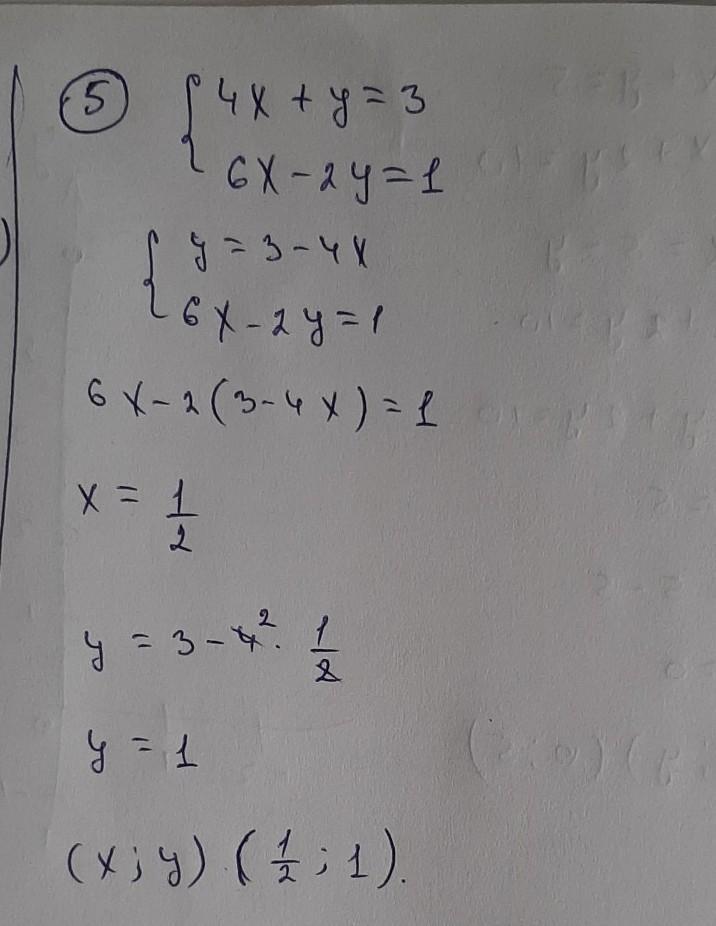 5 { 4x + y = 3
6x - 2y = 1
{ y = 3 - 4x
6x - 2y = 1
6x - 2(3 - 4x) = 1
x = 1/2
y = 3 - 4² · 1/2
y = 1
(x; y) (1/2; 1).